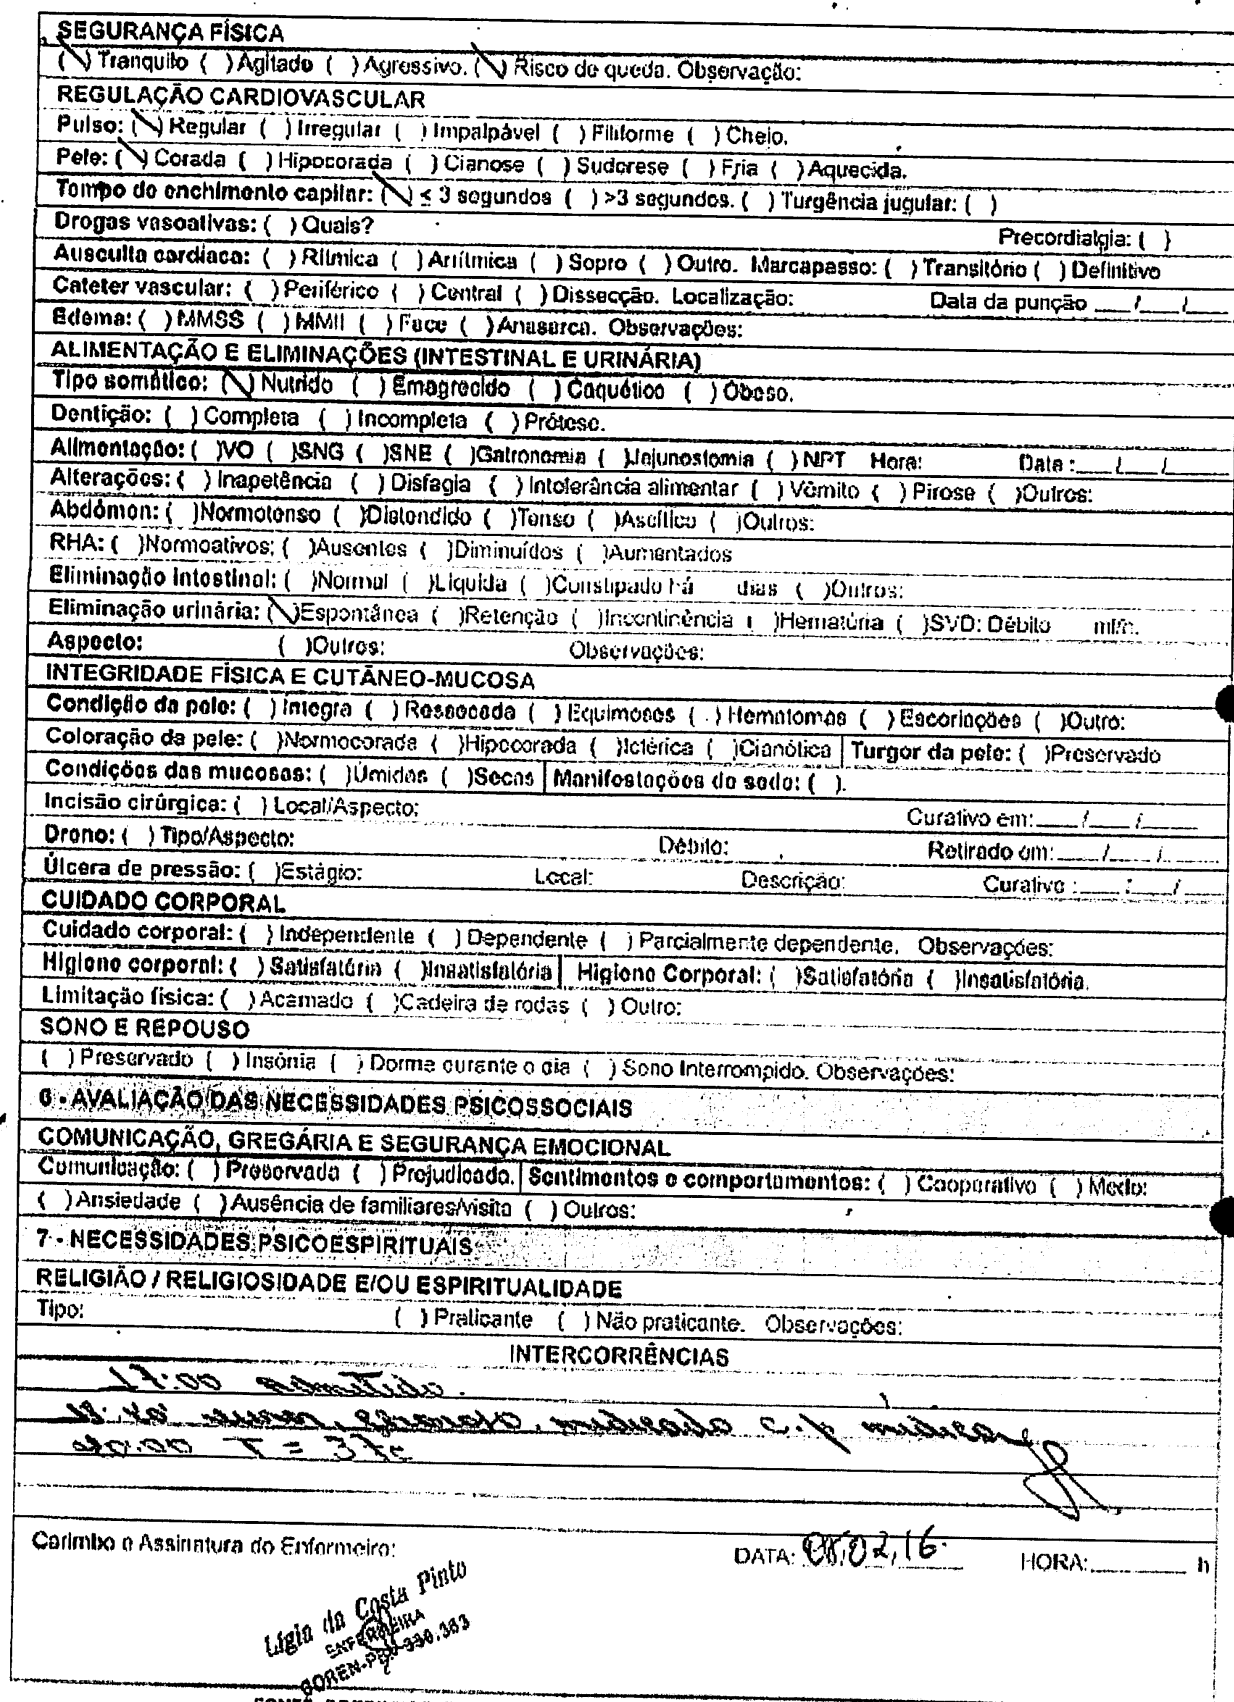 SEGURANÇA FÍSICA
(\) Tranquilo ( ) Agitado ( ) Agressivo. (\) Risco de queda. Observação:
REGULAÇÃO CARDIOVASCULAR
Pulso: (\) Regular ( ) Irregular ( ) Impalpável ( ) Filiforme ( ) Cheio.
Pele: (\) Corada ( ) Hipocorada ( ) Cianose ( ) Sudorese ( ) Fria ( ) Aquecida.
Tempo de enchimento capilar: (\) ≤ 3 segundos ( ) >3 segundos. ( ) Turgência jugular: ( )
Drogas vasoativas: ( ) Quais? Precordialgia: ( )
Ausculta cardíaca: ( ) Rítmica ( ) Arrítmica ( ) Sopro ( ) Outro. Marcapasso: ( ) Transitório ( ) Definitivo
Cateter vascular: ( ) Periférico ( ) Central ( ) Dissecção. Localização: Data da punção ___/___/___
Edema: ( ) MMSS ( ) MMII ( ) Face ( ) Anasarca. Observações:
ALIMENTAÇÃO E ELIMINAÇÕES (INTESTINAL E URINÁRIA)
Tipo somático: (\) Nutrido ( ) Emagrecido ( ) Caquético ( ) Obeso.
Dentição: ( ) Completa ( ) Incompleta ( ) Prótese.
Alimentação: ( )VO ( )SNG ( )SNE ( )Gatronomia ( )Jejunostomia ( ) NPT Hora: Data :___/___/___
Alterações: ( ) Inapetência ( ) Disfagia ( ) Intolerância alimentar ( ) Vômito ( ) Pirose ( )Outros:
Abdômen: ( )Normotenso ( )Distendido ( )Tenso ( )Ascítico ( )Outros:
RHA: ( )Normoativos; ( )Ausentes ( )Diminuídos ( )Aumentados
Eliminação intestinal: ( )Normal ( )Líquida ( )Constipado há dias ( )Outros:
Eliminação urinária: (\)Espontânea ( )Retenção ( )Incontinência ( )Hematúria ( )SVD: Débito ___ ml/h.
Aspecto: ( )Outros: Observações:
INTEGRIDADE FÍSICA E CUTÂNEO-MUCOSA
Condição da pele: ( ) Íntegra ( ) Ressecada ( ) Equimoses ( ) Hematomas ( ) Escoriações ( )Outro:
Coloração da pele: ( )Normocorada ( )Hipocorada ( )Ictérica ( )Cianótica Turgor da pele: ( )Preservado
Condições das mucosas: ( )Úmidas ( )Secas Manifestações de sede: ( ).
Incisão cirúrgica: ( ) Local/Aspecto: Curativo em:___/___/___
Dreno: ( ) Tipo/Aspecto: Débito: Retirado em:___/___/___
Úlcera de pressão: ( )Estágio: Local: Descrição: Curativo :___/___/
CUIDADO CORPORAL
Cuidado corporal: ( ) Independente ( ) Dependente ( ) Parcialmente dependente. Observações:
Higiene corporal: ( ) Satisfatória ( )Insatisfatória Higiene Corporal: ( )Satisfatória ( )Insatisfatória.
Limitação física: ( ) Acamado ( )Cadeira de rodas ( ) Outro:
SONO E REPOUSO
( ) Preservado ( ) Insônia ( ) Dorme durante o dia ( ) Sono Interrompido. Observações:
6 - AVALIAÇÃO DAS NECESSIDADES PSICOSSOCIAIS
COMUNICAÇÃO, GREGÁRIA E SEGURANÇA EMOCIONAL
Comunicação: ( ) Preservada ( ) Prejudicada. Sentimentos e comportamentos: ( ) Cooperativo ( ) Medo:
( ) Ansiedade ( ) Ausência de familiares/visita ( ) Outros:
7 - NECESSIDADES PSICOESPIRITUAIS
RELIGIÃO / RELIGIOSIDADE E/OU ESPIRITUALIDADE
Tipo: ( ) Praticante ( ) Não praticante. Observações:
INTERCORRÊNCIAS
17:00 admitido.
medicado c.p médica
20:00 T = 37c
Carimbo e Assinatura do Enfermeiro: DATA: 08,02,16 HORA:______ h
Ligia da Costa Pinto
ENFERMEIRA